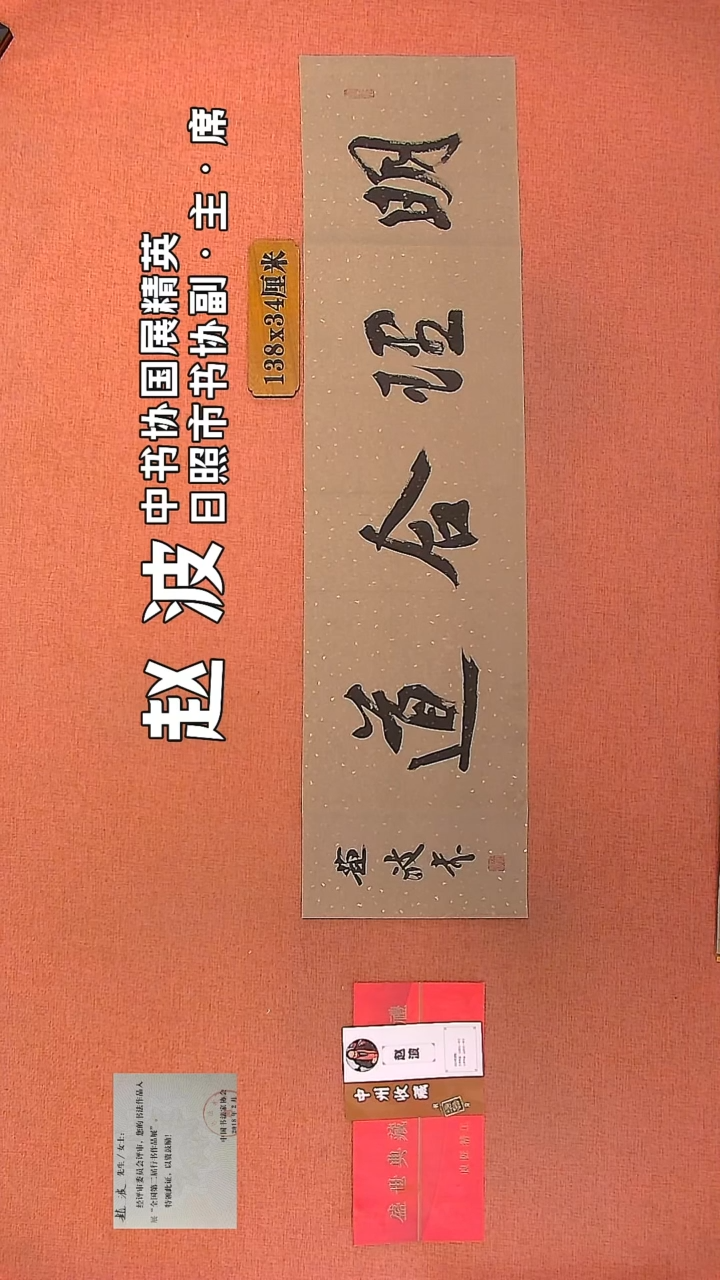 赵波
中书协国展精英
日照市书协副·主·席
138x34厘米
明恒合道
波
赵波 先生/女士：
经评审委员会评审，您的书法作品入
展“全国第二届行书作品展”。
特颁此证，以资鼓励！
中国书法家协会
2018年2月
盛世典藏
禮
赵波
中州收藏